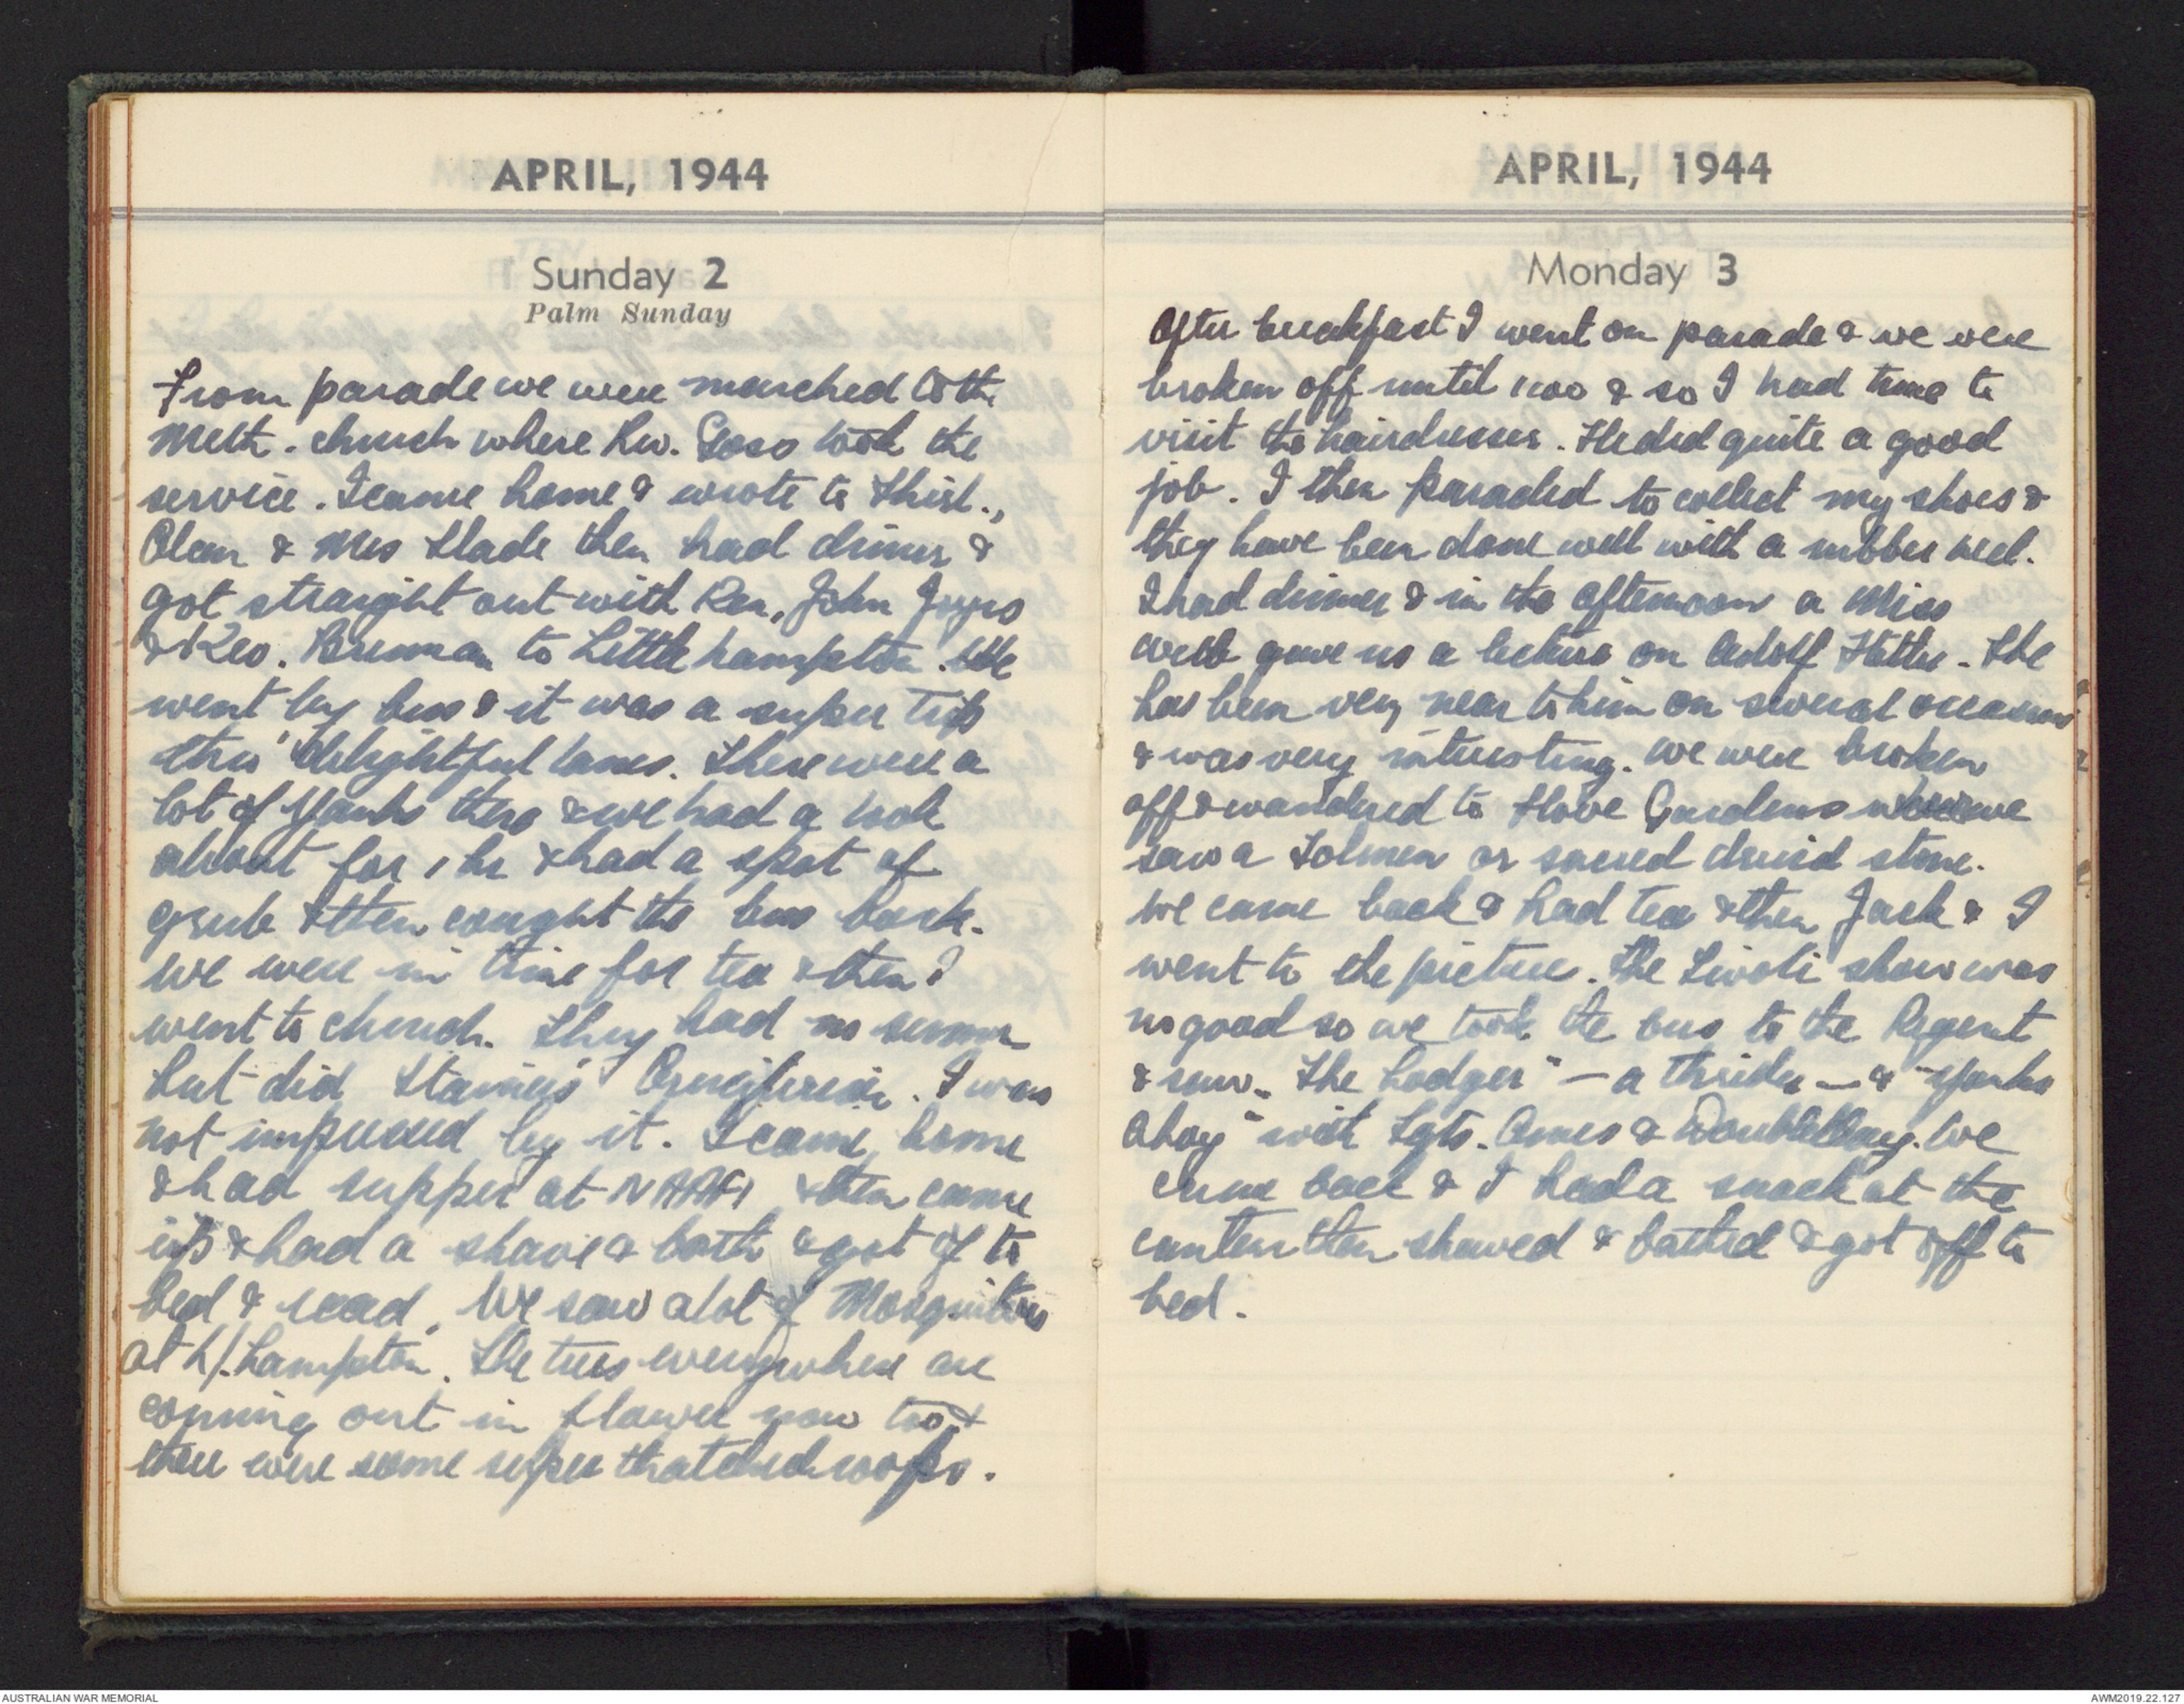 APRIL, 1944
Sunday 2
Palm Sunday
From parade we were marched to th
Meth. church where Rev. Goss took the
service. I came home & wrote to Shirl.,
Alan & Mrs Slade then had dinner &
got straight out with Ren, John Joyes
& Kev. Brennan to Littlehampton. We
went by bus & it was a super trip
thro' delightful lanes. There were a
lot of Yanks there & we had a look
about for 1 hr & had a spot of
grub & then caught the bus back.
We were in time for tea & then I
went to church. They had no sermon
but did Stainer's Crucifixion. I was
not impressed by it. I came home
& had supper at NAAFI & then came
up & had a shave & bath & got off to
bed & read. We saw a lot of Mosquitoes
at L/hampton. The trees everywhere are
coming out in flower now too &
there were some super thatched roofs.
APRIL, 1944
Monday 3
After breakfast I went on parade & we were
broken off until 1100 & so I had time to
visit the hairdresser. He did quite a good
job. I then paraded to collect my shoes &
they have been done well with a rubber heel.
I had dinner & in the afternoon a Miss
Webb gave us a lecture on Adolf Hitler. She
has been very near to him on several occasions
& was very interesting. We were broken
off & wandered to Hove Gardens where we
saw a Tolmen or sacred druid stone.
We came back & had tea & then Jack & I
went to the picture. The Tivoli show was
no good so we took the bus to the Regent
& saw "The Lodger" – a thriller – & "Yanks
Ahoy" with Sgts. Ames & Doubleday. We
came back & I had a snack at the
canteen then shaved & bathed & got off to
bed.
AUSTRALIAN WAR MEMORIAL
AWM2019.22.127